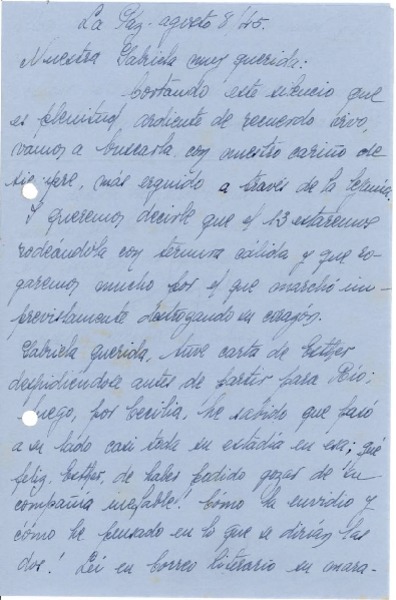 La Paz - agosto 8/45.
Nuestra Gabriela muy querida:
Cortando este silencio que
es plenitud ardiente de recuerdo vivo,
vamos a buscarla con nuestro cariño de
siempre, más erguido a través de la lejanía.
Y queremos decirle que el 13 estaremos
rodeándola con ternura cálida y que ro-
garemos mucho por el que marchó im-
previstamente destrozando su corazón.
Gabriela querida, tuve carta de Esther
despidiéndose antes de partir para Río;
luego, por Cecilia, he sabido que pasó
a su lado casi toda su estadía en esa; qué
feliz Esther, de haber podido gozar de su
compañía inefable! Cómo la envidio y
cómo he pensado en lo que se dirían las
dos! Leí en Correo literario su mara-